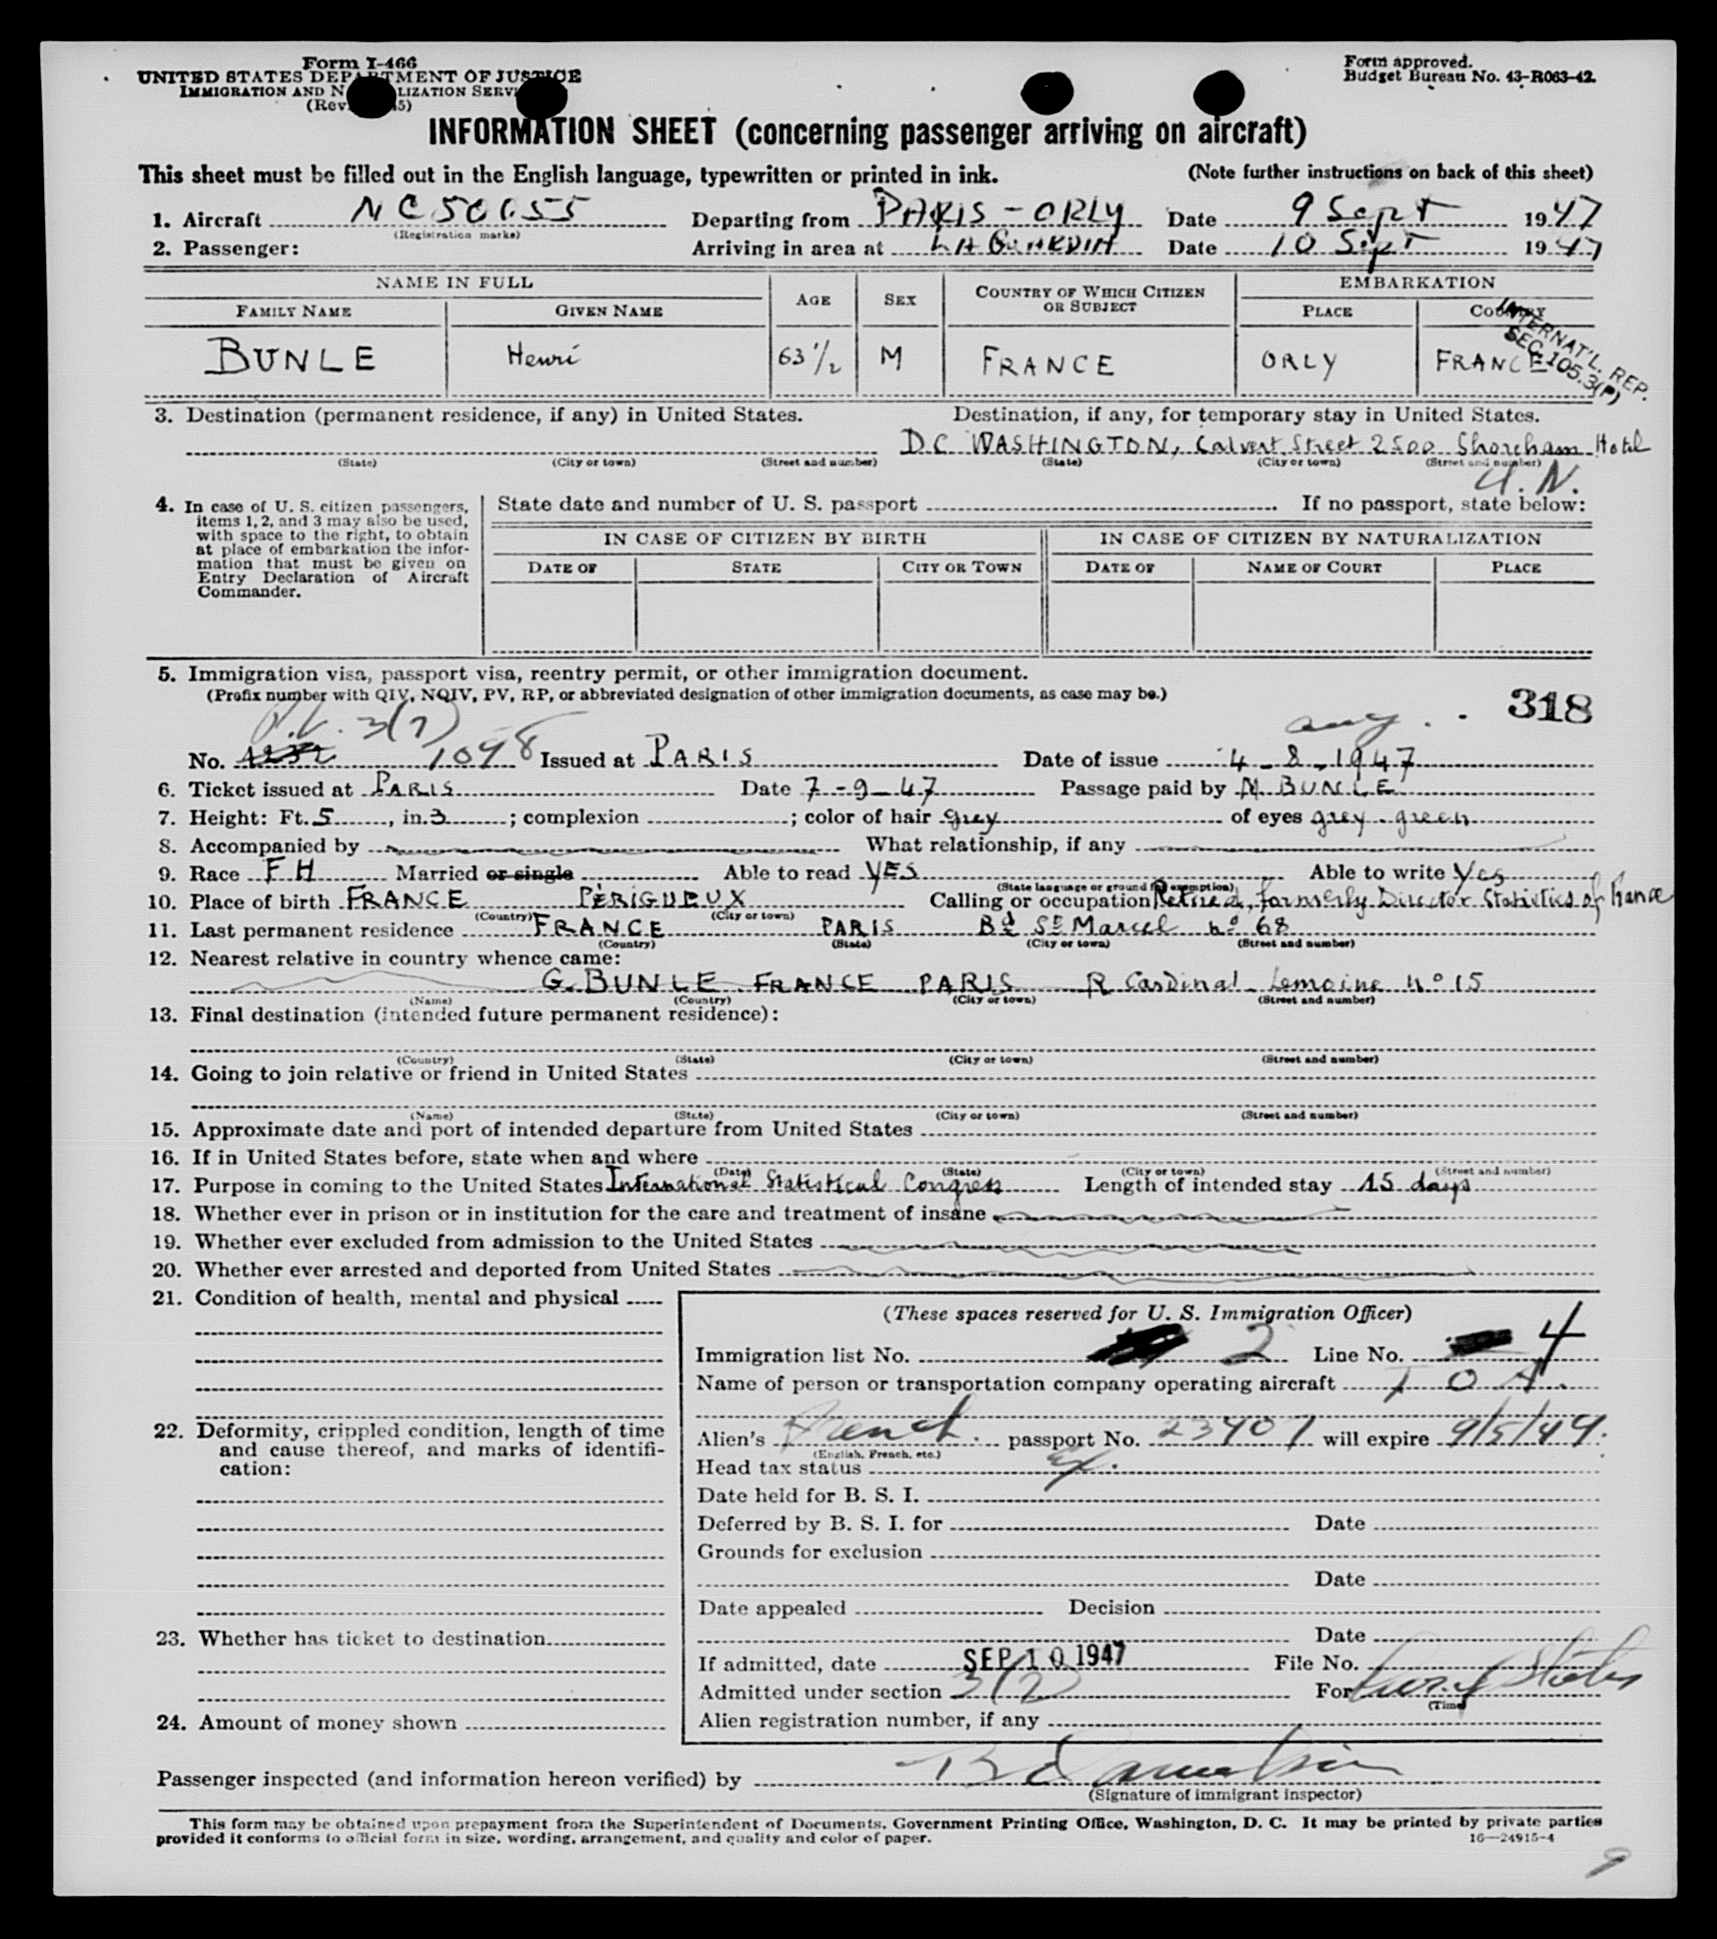 Form I-466
UNITED STATES DEPARTMENT OF JUSTICE
IMMIGRATION AND N LIZATION SERVI
(Rev. 5)
Form approved.
Budget Bureau No. 43-R063-42.
INFORMATION SHEET (concerning passenger arriving on aircraft)
This sheet must be filled out in the English language, typewritten or printed in ink. (Note further instructions on back of this sheet)
1. Aircraft Departing from PARIS - ORLY Date 9 Sept 1947
(Registration marks)
2. Passenger: Arriving in area at Date 10 Sept 1947
NAME IN FULL AGE SEX COUNTRY OF WHICH CITIZEN OR SUBJECT EMBARKATION
FAMILY NAME GIVEN NAME PLACE COUNTRY
BUNLE Henri 63 1/2 M FRANCE ORLY FRANCE
INTERNAT'L. REP.
SEC. 105.3(P)
3. Destination (permanent residence, if any) in United States. Destination, if any, for temporary stay in United States.
D.C. WASHINGTON, Calvert Street 2500 Shoreham Hotel
(State) (City or town) (Street and number) (State) (City or town) (Street and number)
U.N.
4. In case of U. S. citizen passengers, items 1, 2, and 3 may also be used, with space to the right, to obtain at place of embarkation the information that must be given on Entry Declaration of Aircraft Commander.
State date and number of U. S. passport If no passport, state below:
IN CASE OF CITIZEN BY BIRTH IN CASE OF CITIZEN BY NATURALIZATION
DATE OF STATE CITY OR TOWN DATE OF NAME OF COURT PLACE
5. Immigration visa, passport visa, reentry permit, or other immigration document.
(Prefix number with QIV, NQIV, PV, RP, or abbreviated designation of other immigration documents, as case may be.)
318
P.V. 3(7) aug.
No. 1098 Issued at PARIS Date of issue 4-8-1947
6. Ticket issued at PARIS Date 7-9-47 Passage paid by M. BUNLE
7. Height: Ft. 5, in. 3; complexion ; color of hair grey of eyes grey-green
8. Accompanied by What relationship, if any
9. Race FH Married or single Able to read YES Able to write Yes
(State language or ground for exemption)
10. Place of birth FRANCE PÉRIGUEUX Calling or occupation Retired, formerly Director Statistics of France
(Country) (City or town)
11. Last permanent residence FRANCE PARIS Bd St Marcel no 68
(Country) (State) (City or town) (Street and number)
12. Nearest relative in country whence came:
G. BUNLE FRANCE PARIS R Cardinal Lemoine no 15
(Name) (Country) (City or town) (Street and number)
13. Final destination (intended future permanent residence):
(Country) (State) (City or town) (Street and number)
14. Going to join relative or friend in United States
(Name) (State) (City or town) (Street and number)
15. Approximate date and port of intended departure from United States
16. If in United States before, state when and where
(Date) (State) (City or town) (Street and number)
17. Purpose in coming to the United States International Statistical Congress Length of intended stay 15 days
18. Whether ever in prison or in institution for the care and treatment of insane
19. Whether ever excluded from admission to the United States
20. Whether ever arrested and deported from United States
21. Condition of health, mental and physical
22. Deformity, crippled condition, length of time and cause thereof, and marks of identification:
23. Whether has ticket to destination
24. Amount of money shown
(These spaces reserved for U. S. Immigration Officer)
Immigration list No. 2 Line No. 4
Name of person or transportation company operating aircraft
Alien's French passport No. 23407 will expire 9/5/49.
(English, French, etc.)
Head tax status ex.
Date held for B. S. I.
Deferred by B. S. I. for Date
Grounds for exclusion
Date
Date appealed Decision
Date
If admitted, date SEP 10 1947 File No.
Admitted under section 3(7) For Status
(Time)
Alien registration number, if any
Passenger inspected (and information hereon verified) by
(Signature of immigrant inspector)
This form may be obtained upon prepayment from the Superintendent of Documents, Government Printing Office, Washington, D. C. It may be printed by private parties
provided it conforms to official form in size, wording, arrangement, and quality and color of paper. 16—24915-4
9